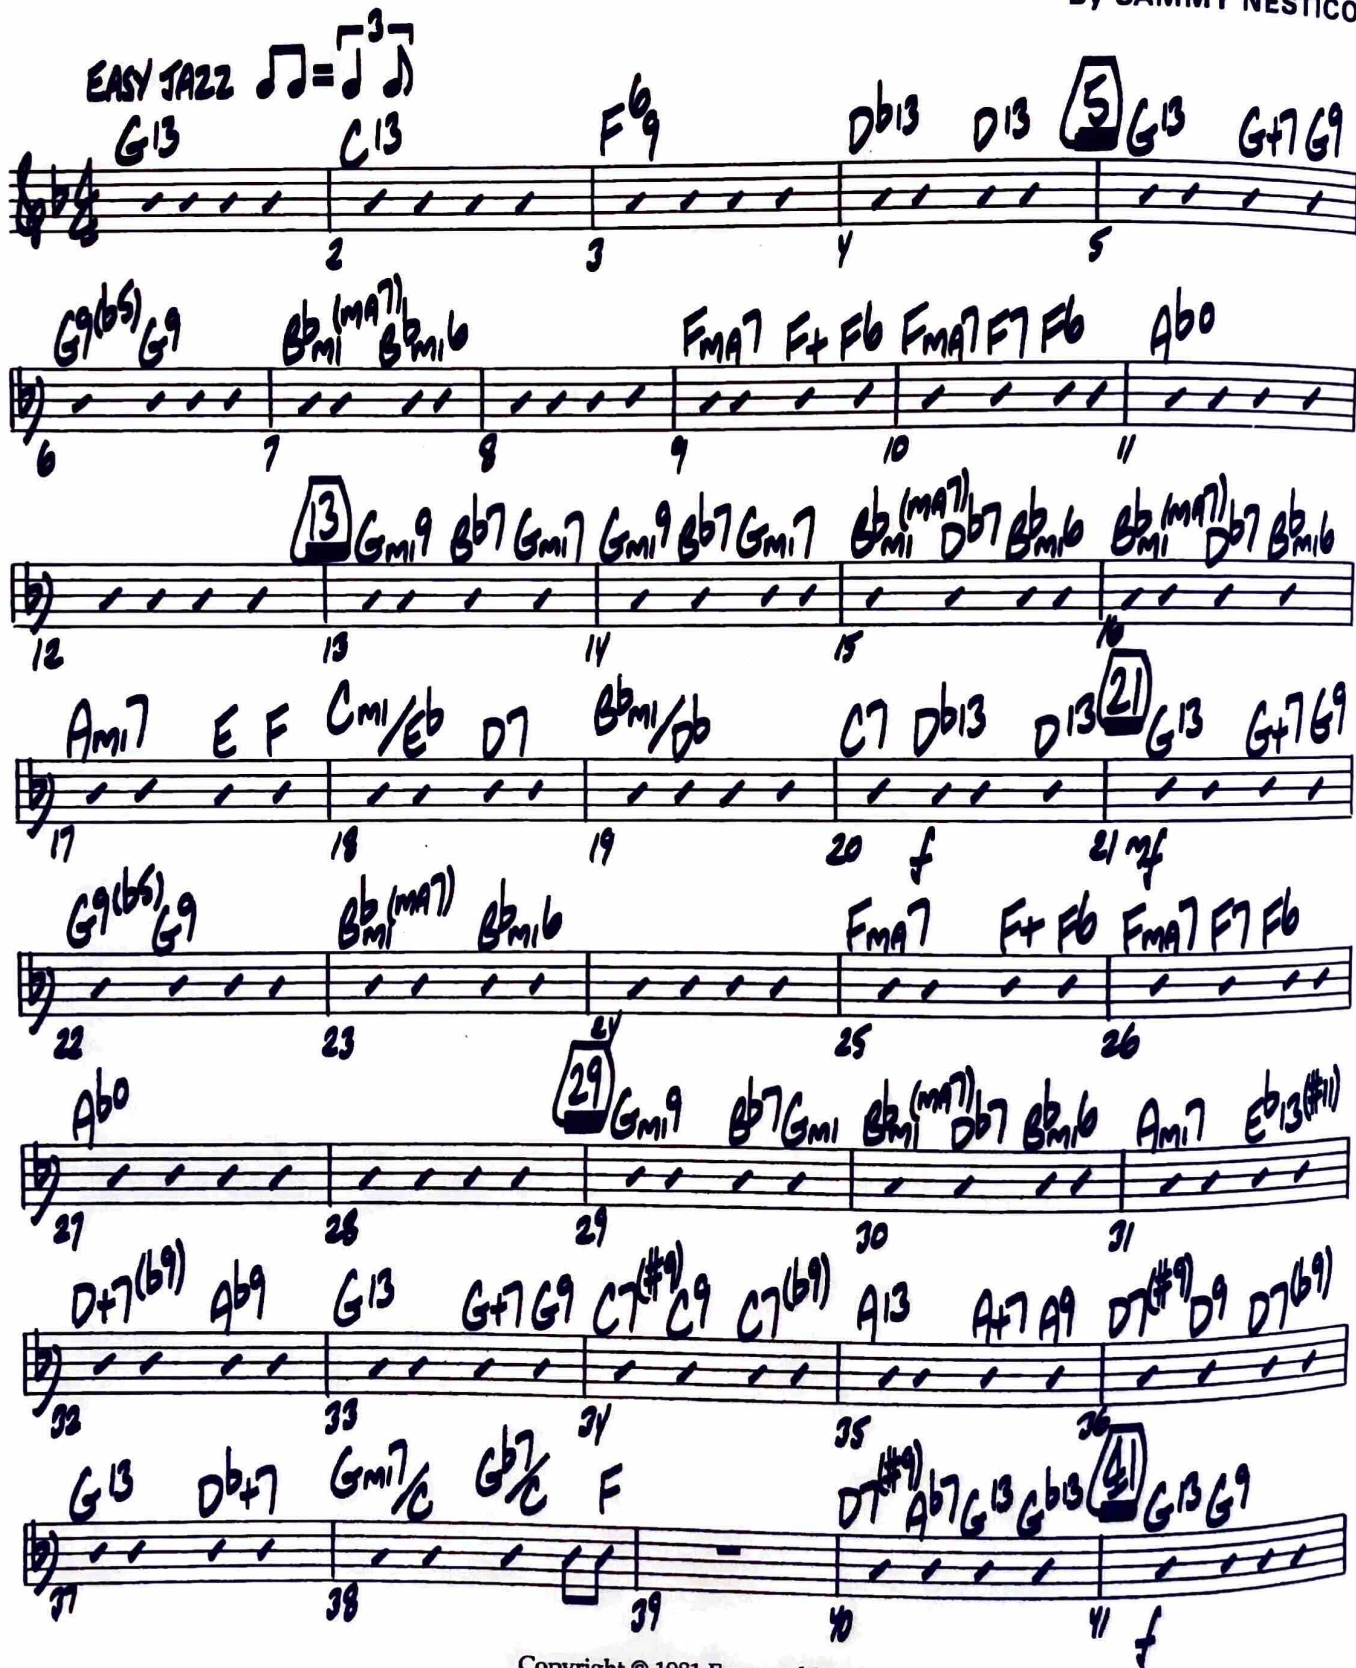 By SAMMY NESTICO
EASY JAZZ ♫=♩♪ 3
G13 C13 F6/9 Db13 D13 5 G13 G+7 G9
2 3 4 5
G9(b5) G9 Bbmi(MA7) Bbmi6 FMA7 F+ F6 FMA7 F7 F6 Abo
6 7 8 9 10 11
13 Gmi9 Bb7 Gmi7 Gmi9 Bb7 Gmi7 Bbmi(MA7) Db7 Bbmi6 Bbmi(MA7) Db7 Bbmi6
12 13 14 15 16
Ami7 E F Cmi/Eb D7 Bbmi/Db C7 Db13 D13 21 G13 G+7 G9
17 18 19 20 f 21 mf
G9(b5) G9 Bbmi(MA7) Bbmi6 FMA7 F+ F6 FMA7 F7 F6
22 23 24 25 26
Abo 29 Gmi9 Bb7 Gmi Bbmi(MA7) Db7 Bbmi6 Ami7 Eb13(#11)
27 28 29 30 31
D+7(b9) Ab9 G13 G+7 G9 C7(#9) C9 C7(b9) A13 A+7 A9 D7(#9) D9 D7(b9)
32 33 34 35 36
G13 Db+7 Gmi7/C Gb7/C F D7(#9) Ab7 G13 Gb13 41 G13 G9
37 38 39 40 41 f
Copyright © 1981